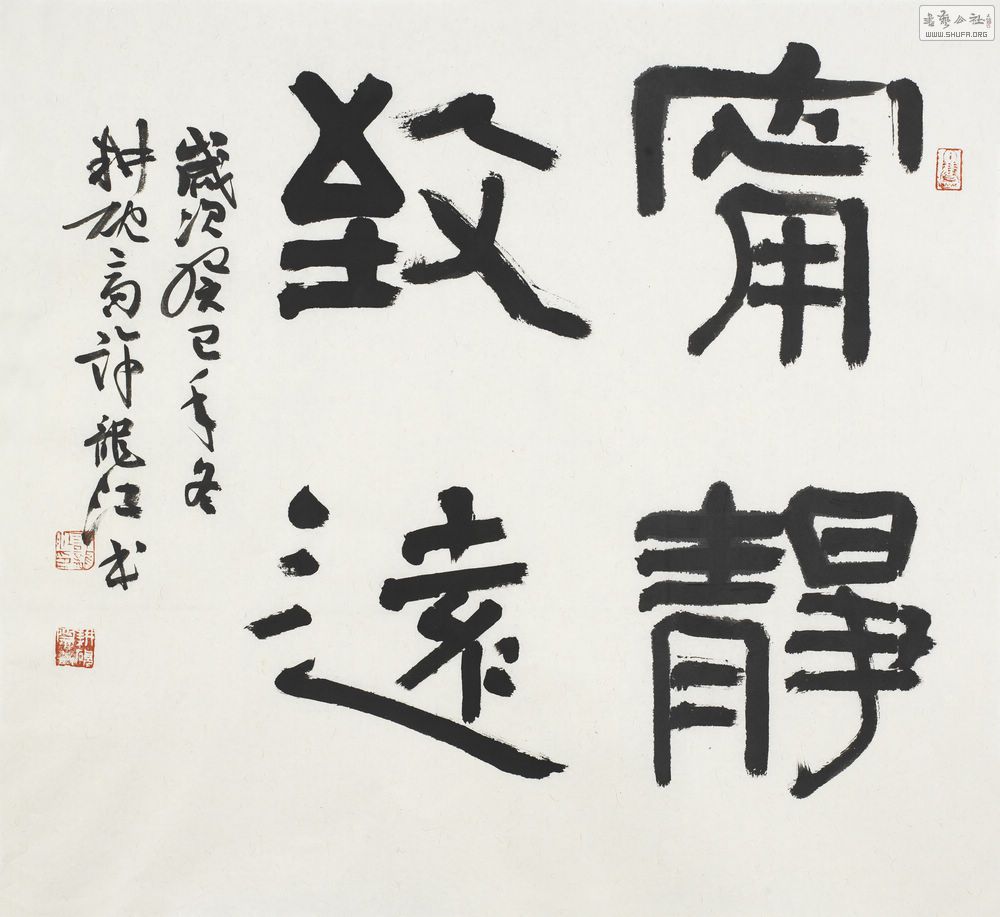 甯靜
致遠
歲次癸巳年冬
耕硯齋許龍江書
書藝公社
WWW.SHUFA.ORG